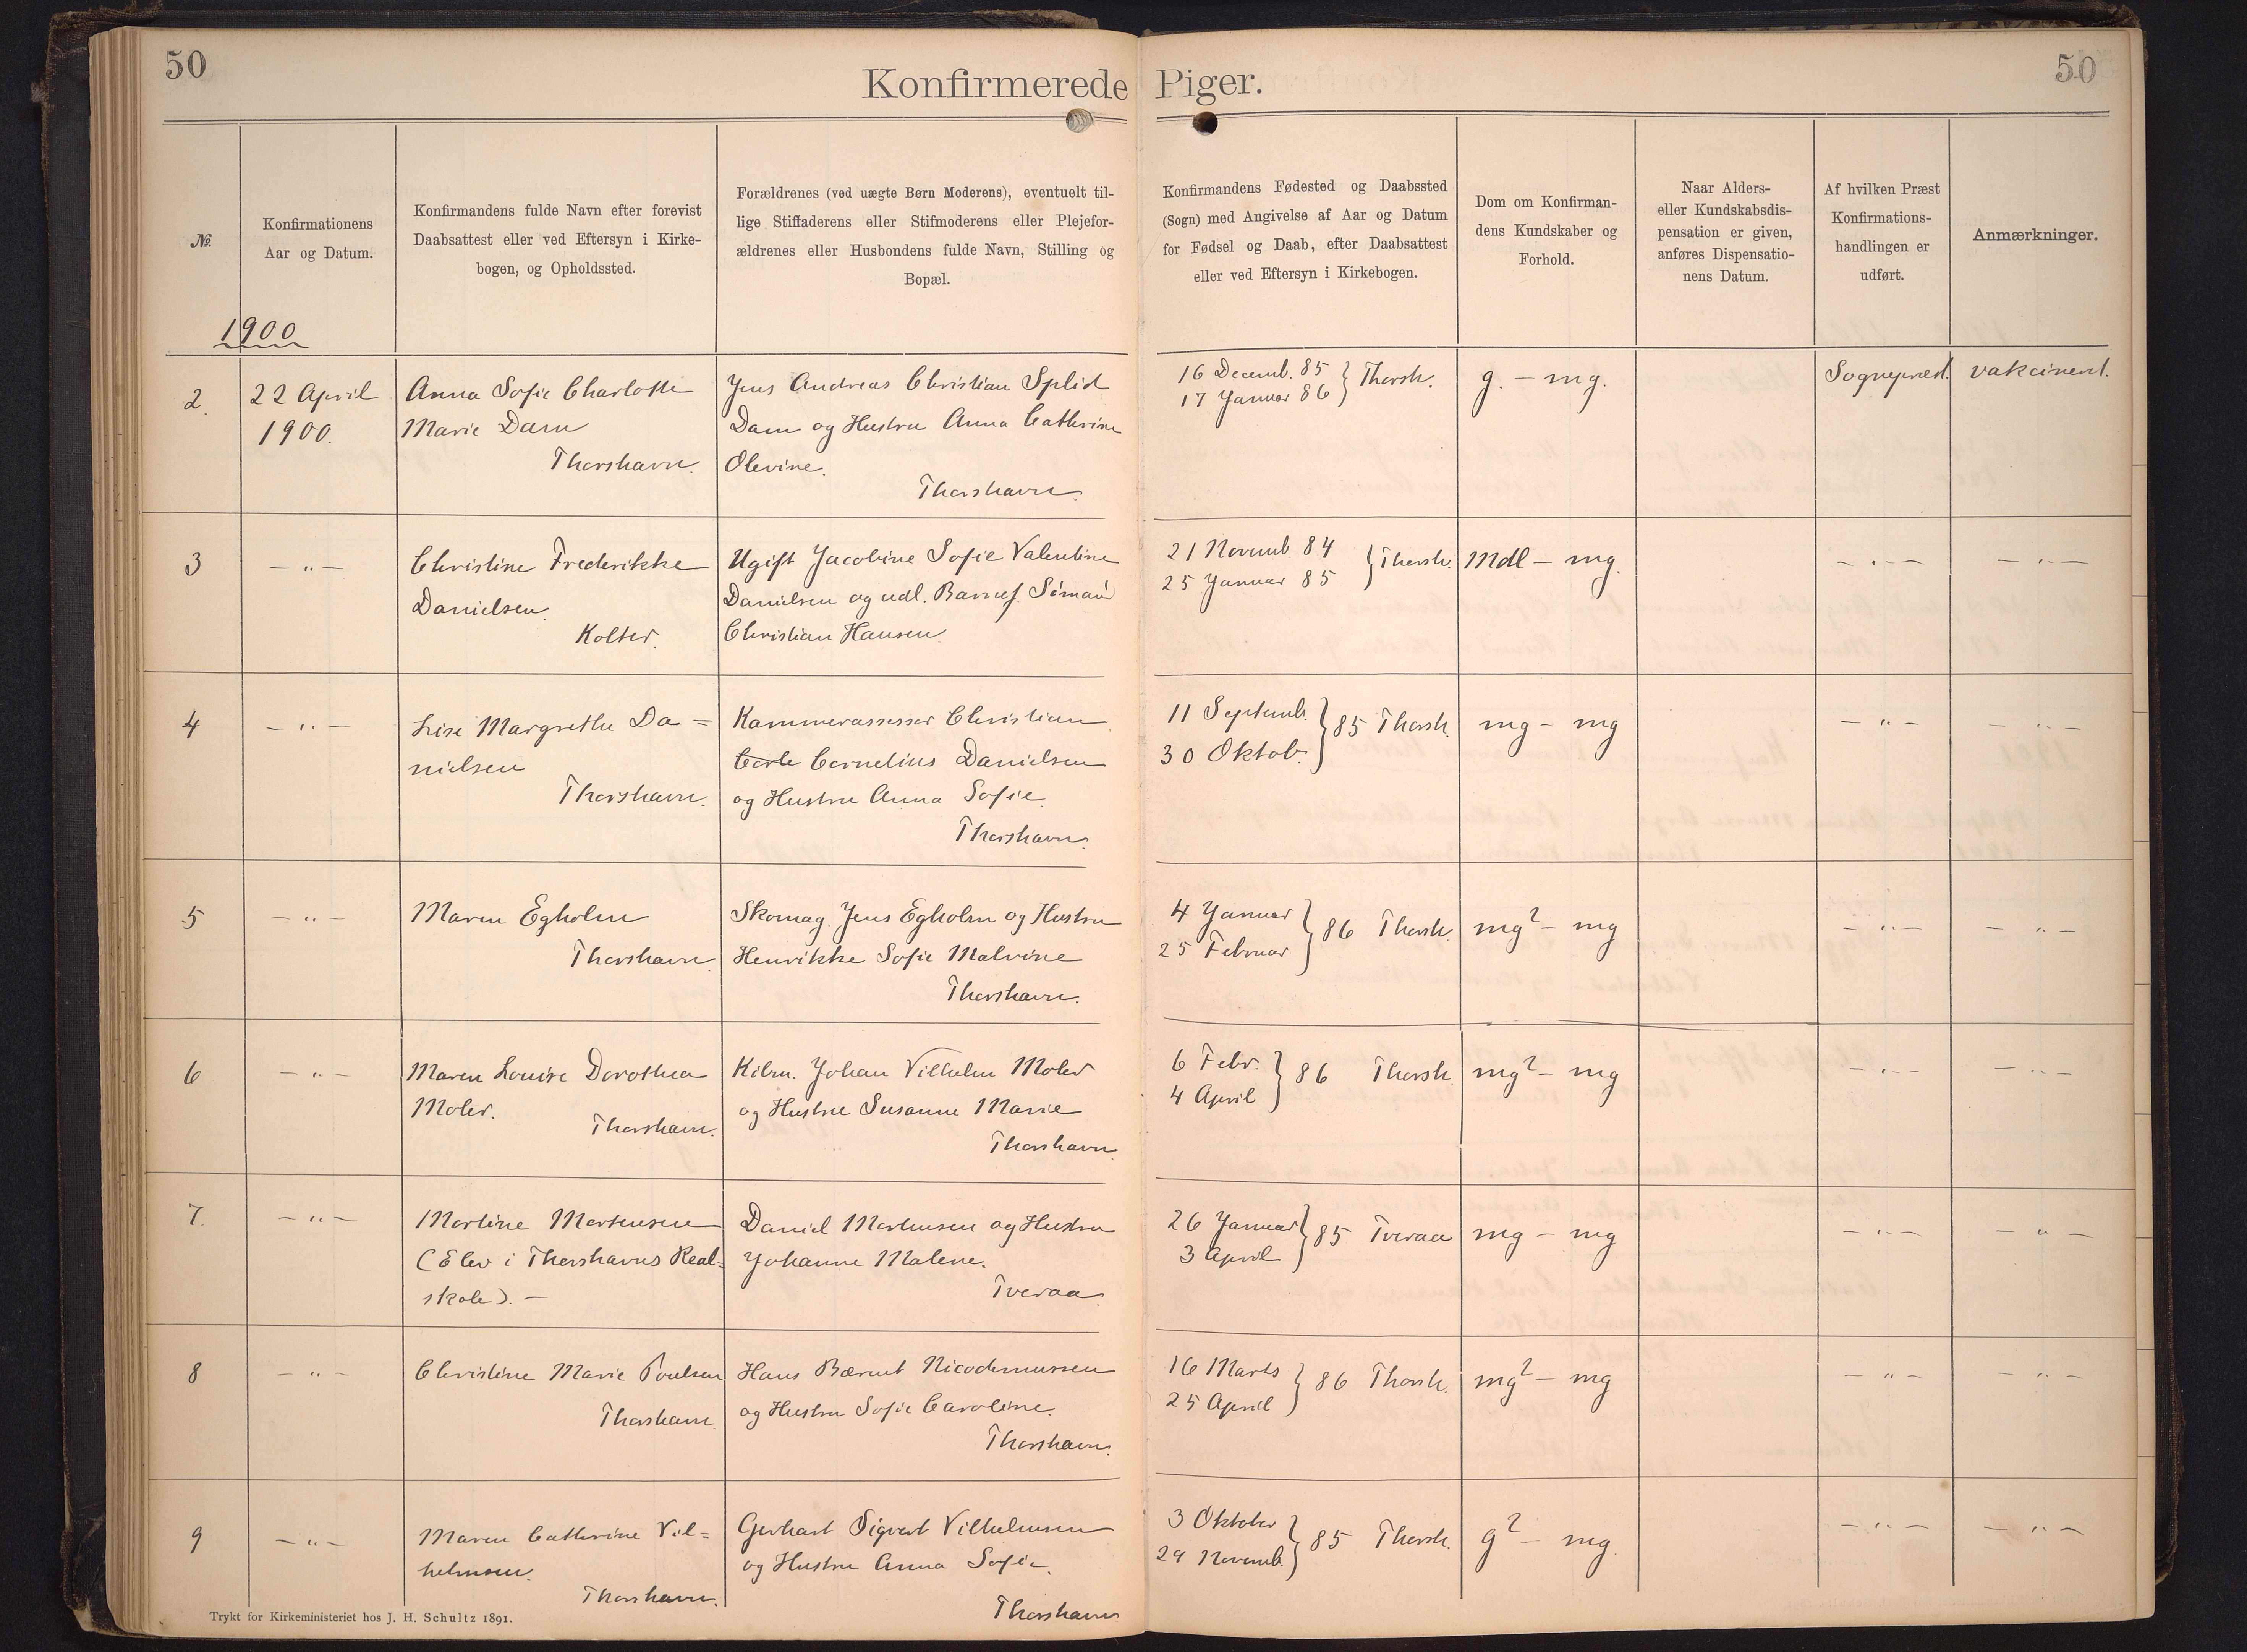 50
Konfirmerede Piger.
50
№
Konfirmationens
Aar og Datum.
Konfirmandens fulde Navn efter forevist
Daabsattest eller ved Eftersyn i Kirke-
bogen, og Opholdssted.
Forældrenes (ved uægte Børn Moderens), eventuelt til-
lige Stiffaderens eller Stifmoderens eller Plejefor-
ældrenes eller Husbondens fulde Navn, Stilling og
Bopæl.
Konfirmandens Fødested og Daabssted
(Sogn) med Angivelse af Aar og Datum
for Fødsel og Daab, efter Daabsattest
eller ved Eftersyn i Kirkebogen.
Dom om Konfirman-
dens Kundskaber og
Forhold.
Naar Alders-
eller Kundskabsdis-
pensation er given,
anføres Dispensatio-
nens Datum.
Af hvilken Præst
Konfirmations-
handlingen er
udført.
Anmærkninger.
1900
2.
22 April
1900.
Anna Sofie Charlotte
Marie Dam
Thorshavn.
Jens Andreas Christian Splid
Dam og Hustru Anna Cathrine
Olevine.
Thorshavn.
16 Decemb. 85
17 Januar 86 } Thorsh.
g. – mg.
Sognepræst.
vakcineret.
3
– „ –
Christine Frederikke
Danielsen.
Kolter.
Ugift Jacobine Sofie Valentine
Danielsen og udl. Barnef. Sömand
Christian Hansen
21 Novemb. 84
25 Januar 85 } Thorsh.
Mdl – mg.
– „ –
– „ –
4
– „ –
Lise Margrethe Da=
nielsen
Thorshavn.
Kammerassessor Christian
Carle Cornelius Danielsen
og Hustru Anna Sofie.
Thorshavn.
11 Septemb.
30 Oktob. } 85 Thorsh.
mg – mg
– „ –
– „ –
5
– „ –
Maren Egholm
Thorshavn
Skomag. Jens Egholm og Hustru
Henrikke Sofie Malvine
Thorshavn.
4 Januar
25 Februar } 86 Thorsh.
mg? – mg
– „ –
– „ –
6
– „ –
Maren Louise Dorothea
Moler.
Thorshavn.
Köbm. Johan Vilhelm Moler
og Hustru Susanne Marie
Thorshavn
6 Febr.
4 April } 86 Thorsh.
mg? – mg
– „ –
– „ –
7.
– „ –
Martine Mortensen
(Elev i Thorshavns Real=
skole). –
Daniel Mortensen og Hustru
Johanne Malene.
Tveraa.
26 Januar
3 April } 85 Tveraa
mg – mg
– „ –
– „ –
8
– „ –
Christine Marie Poulsen
Thorshavn.
Hans Bærent Nicodemussen
og Hustru Sofie Caroline.
Thorshavn.
16 Marts
25 April } 86 Thorsh.
mg? – mg
– „ –
– „ –
9
– „ –
Maren Cathrine Vil=
helmsen.
Thorshavn.
Gerhart Sigvert Vilhelmsen
og Hustru Anna Sofie.
Thorshavn
3 Oktober
29 Novemb. } 85 Thorsh.
g? – mg.
– „ –
– „ –
Trykt for Kirkeministeriet hos J. H. Schultz 1891.